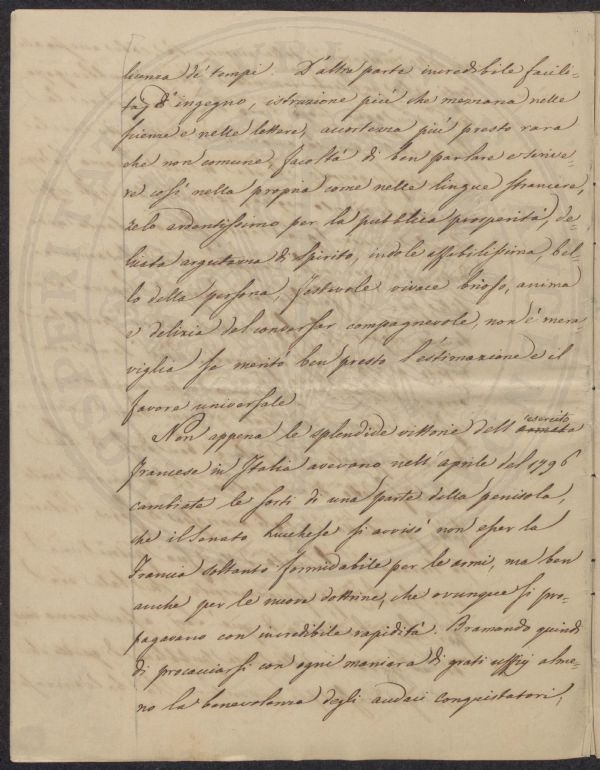 licenza de' tempi. D'altra parte incredibile facili-
tà d'ingegno, istruzione più che mezzana nelle
scienze e nelle lettere, accortezza più presto rara
che non comune, facoltà di ben parlare e scrive-
re così nella propria come nelle lingue straniere,
zelo ardentissimo per la pubblica prosperità, de-
licata argutezza di spirito, indole affabilissima, bel-
lo della persona, festevole vivace brioso, anima
e delizia del conversar compagnevole, non è mera-
viglia se meritò ben presto l'estimazione e il
favore universale
Non appena le splendide vittorie dell'armata esercito
francese in Italia avevano nell'aprile del 1796
cambiate le sorti di una parte della penisola,
che il Senato Lucchese si avvisò non esser la
Francia soltanto formidabile per le armi, ma ben
anche per le nuove dottrine, che ovunque si pro-
pagavano con incredibile rapidità. Bramando quindi
di procacciarsi con ogni maniera di grati uffizj alme-
no la benevolenza degli audaci conquistatori,